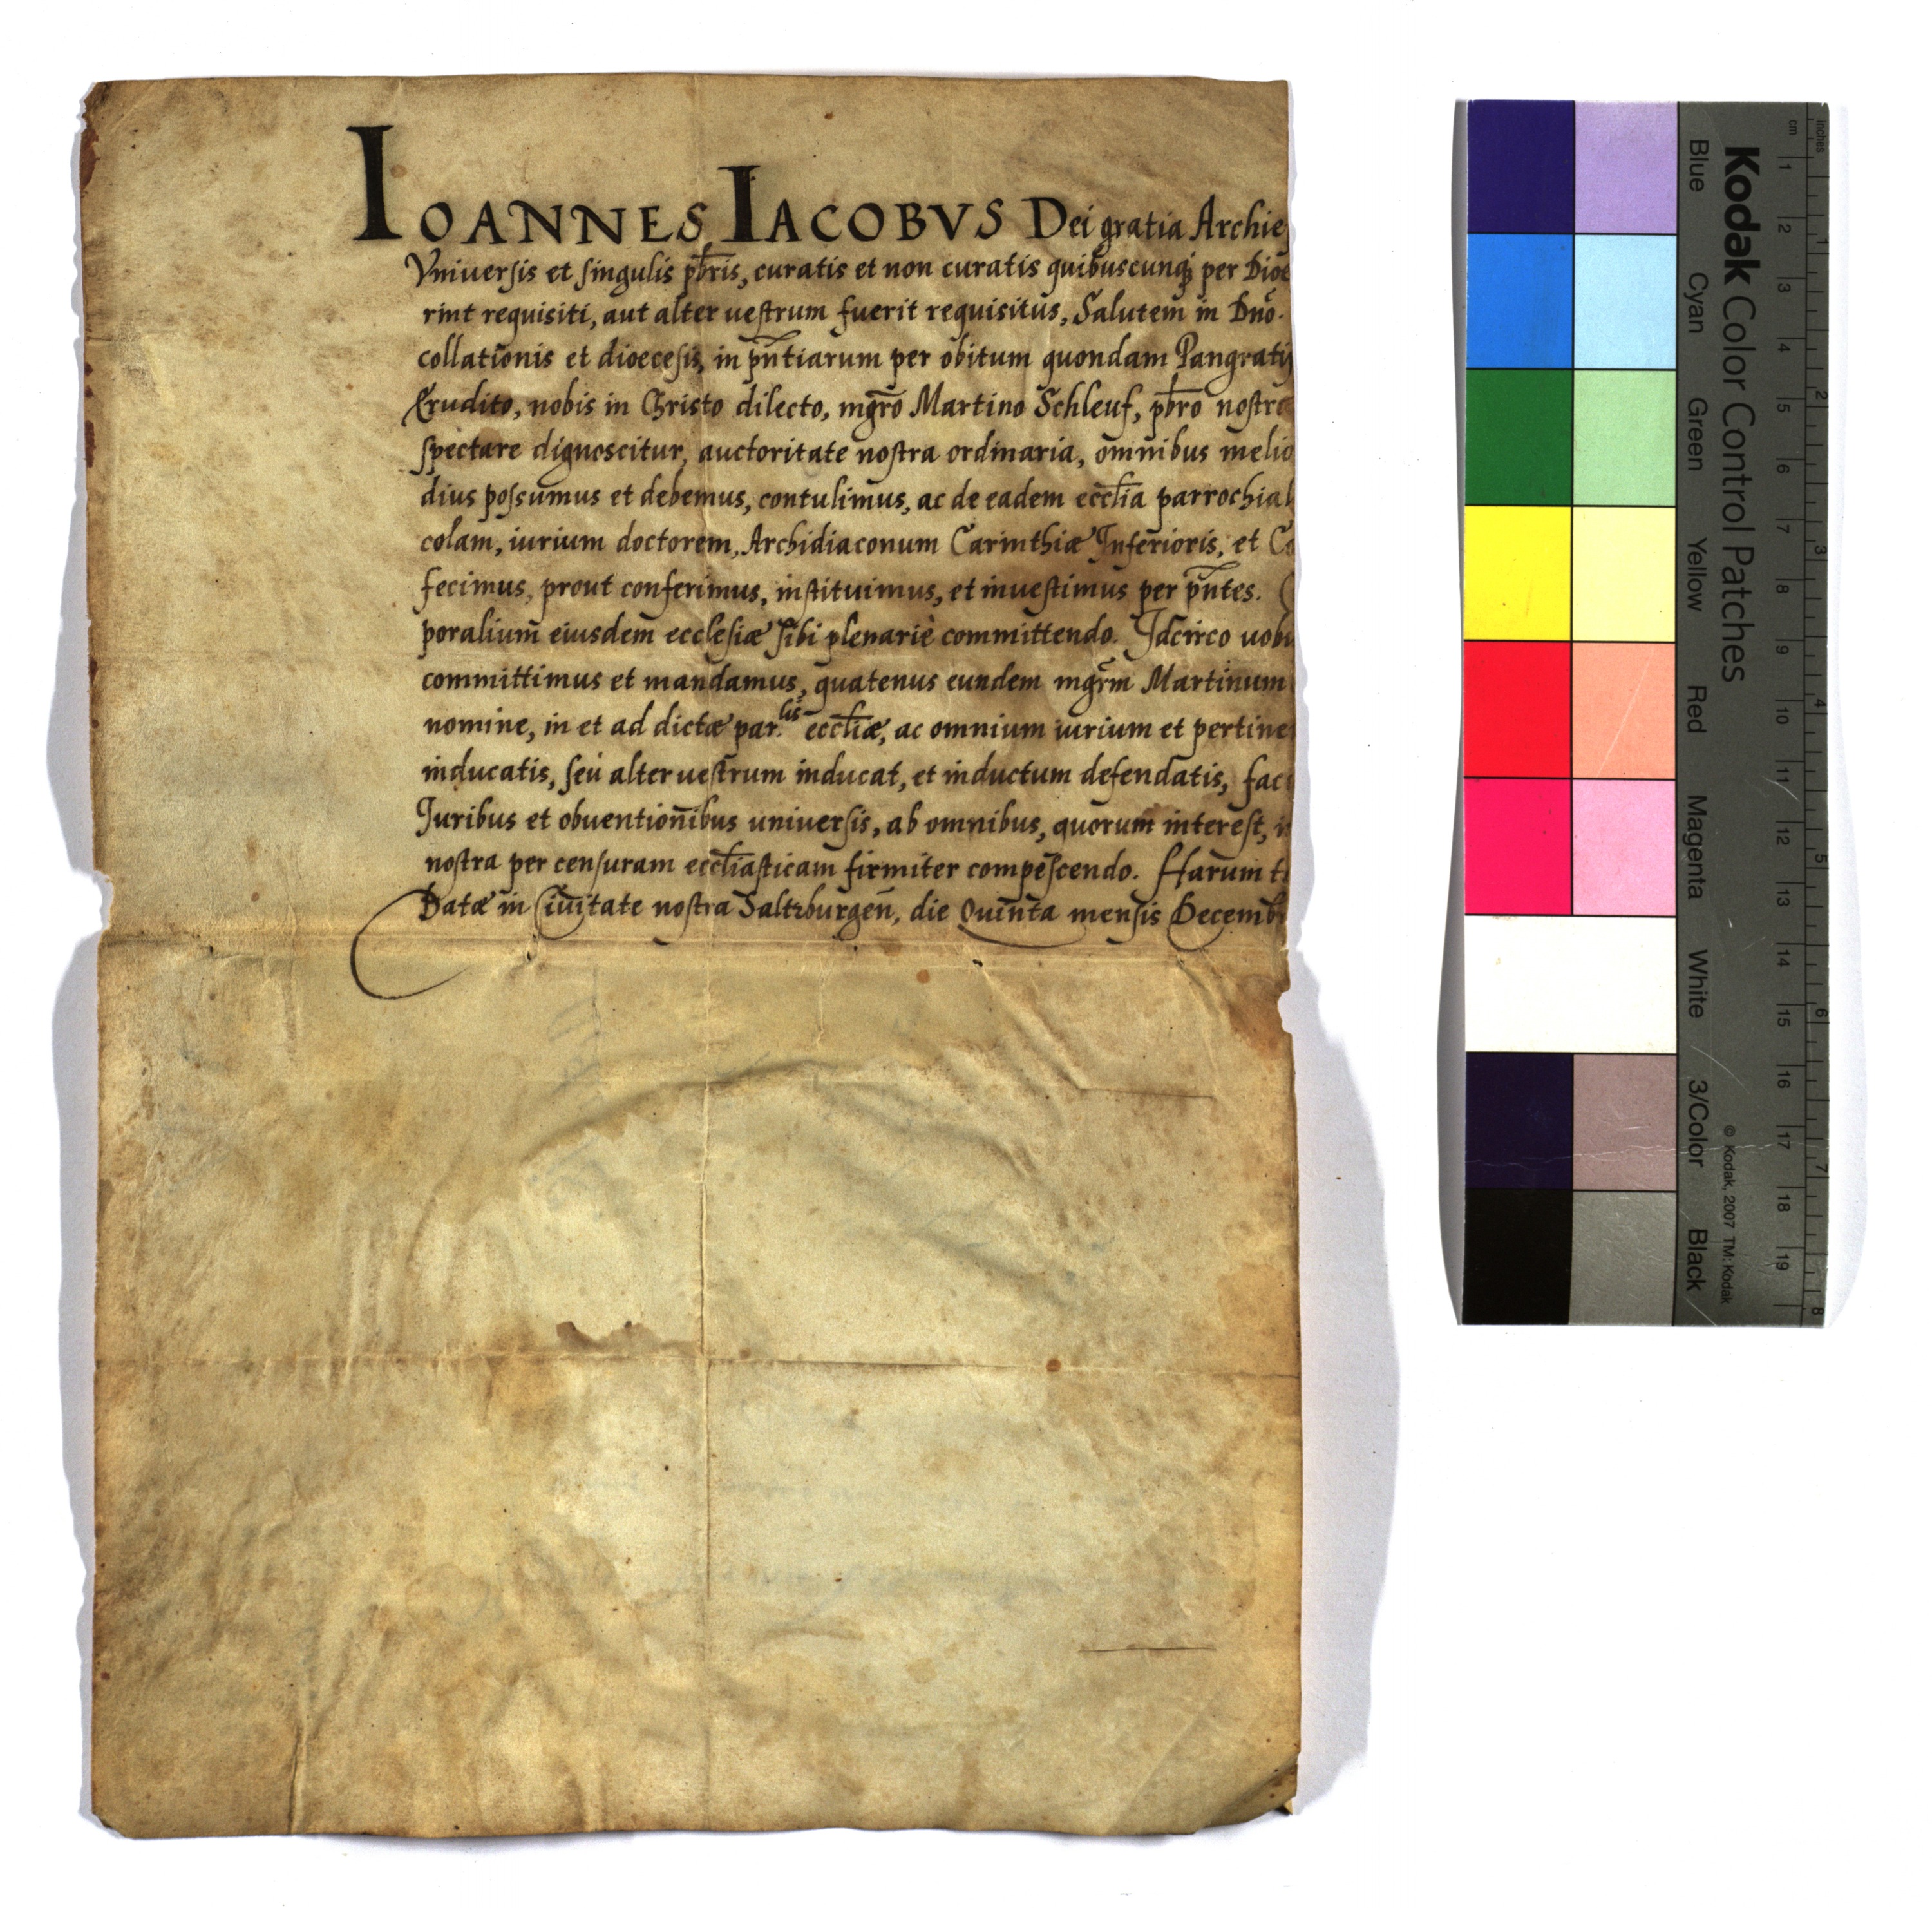 IOANNES IACOBVS Dei gratia Archie
Vniuersis et singulis pb̄ris, curatis et non curatis quibuscunq; per Dioe
rint requisiti, aut alter uestrum fuerit requisitus, Salutem in Dn̄o.
collationis et dioecesis, in pn̄tiarum per obitum quondam Pangratij
Erudito, nobis in Christo dilecto, mgr̄o Martino Schleuf, pb̄ro nostro
spectare dignoscitur, auctoritate nostra ordinaria, omnibus melio
dius possumus et debemus, contulimus, ac de eadem eccl̄ia parrochial
colam, iurium doctorem, Archidiaconum Carinthiæ Inferioris, et Co
fecimus, prout conferimus, instituimus, et inuestimus per pn̄tes.
poralium eiusdem ecclesiæ sibi plenariè committendo. Idcirco uobis
committimus et mandamus, quatenus eundem mgr̄m Martinum
nomine, in et ad dictæ par.lis eccl̄iæ, ac omnium iurium et pertine
inducatis, seu alter uestrum inducat, et inductum defendatis, faci
Iuribus et obuentionibus uniuersis, ab omnibus, quorum interest, in
nostra per censuram eccl̄iasticam firmiter compescendo. Harum t
Datæ in Ciuitate nostra Saltzburgen̄, die Quinta mensis Decemb
Kodak Color Control Patches
Blue Cyan Green Yellow Red Magenta White 3/Color Black
© Kodak, 2007 TM: Kodak
cm 1 2 3 4 5 6 7 8 9 10 11 12 13 14 15 16 17 18 19
inches 1 2 3 4 5 6 7 8